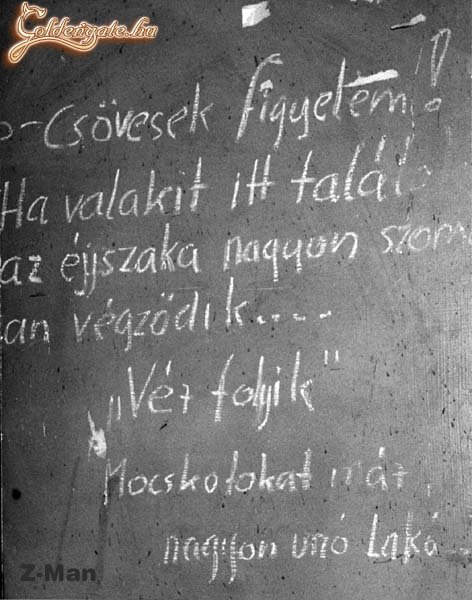 Goldengate.hu
-Csövesek figyelem!
Ha valakit itt talál
az éjjszaka nagyon szorn
an végződik....
„Vér folyik"
Mocskotokat már
nagyon unó Laká
Z-Man